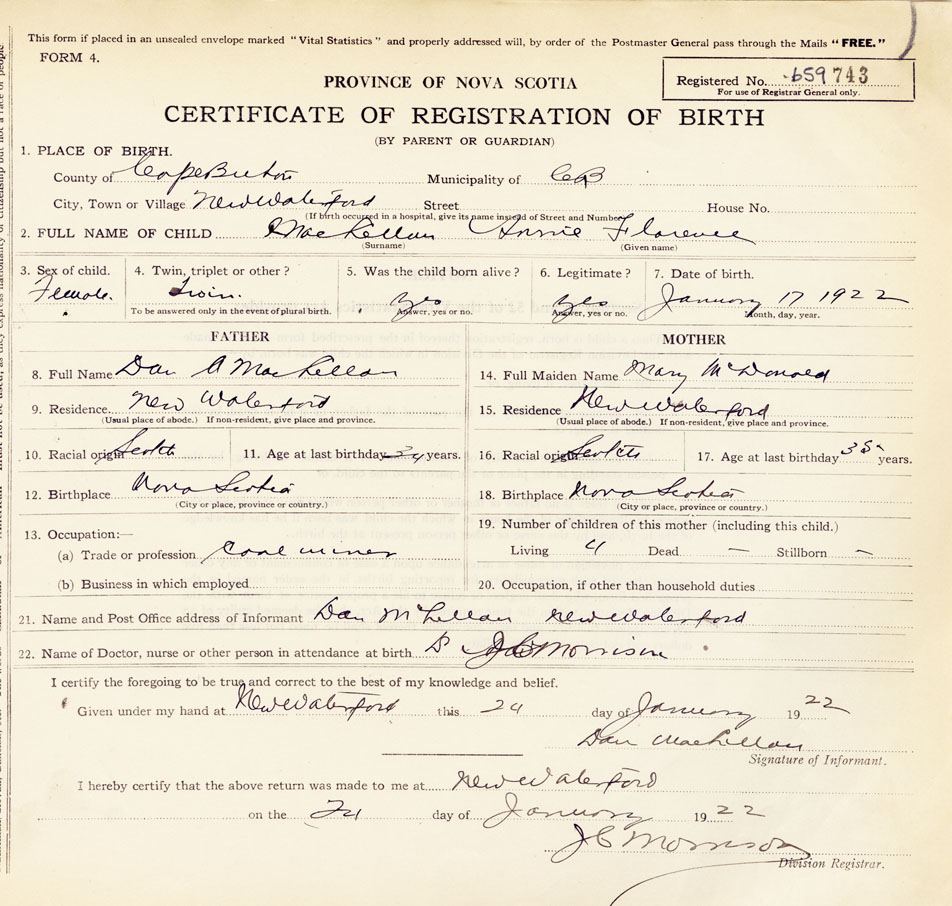 This form if placed in an unsealed envelope marked "Vital Statistics" and properly addressed will, by order of the Postmaster General pass through the Mails "FREE."
FORM 4.
Registered No. 659 743
For use of Registrar General only.
PROVINCE OF NOVA SCOTIA
CERTIFICATE OF REGISTRATION OF BIRTH
(BY PARENT OR GUARDIAN)
1. PLACE OF BIRTH.
County of Cape Breton Municipality of CB
City, Town or Village New Waterford Street House No.
(If birth occurred in a hospital, give its name instead of Street and Number)
2. FULL NAME OF CHILD MacLellan Annie Florence
(Surname) (Given name)
3. Sex of child. 4. Twin, triplet or other? 5. Was the child born alive? 6. Legitimate? 7. Date of birth.
Female. Twin. Yes Yes January 17 1922
To be answered only in the event of plural birth. Answer, yes or no. Answer, yes or no. Month, day, year.
FATHER MOTHER
8. Full Name Dan A MacLellan 14. Full Maiden Name Mary McDonald
9. Residence New Waterford 15. Residence New Waterford
(Usual place of abode.) If non-resident, give place and province. (Usual place of abode.) If non-resident, give place and province.
10. Racial origin 11. Age at last birthday years. 16. Racial origin 17. Age at last birthday 35 years.
12. Birthplace Nova Scotia 18. Birthplace Nova Scotia
(City or place, province or country.) (City or place, province or country.)
13. Occupation:— 19. Number of children of this mother (including this child.)
(a) Trade or profession Coal miner Living 4 Dead — Stillborn —
(b) Business in which employed 20. Occupation, if other than household duties
21. Name and Post Office address of Informant Dan McLellan New Waterford
22. Name of Doctor, nurse or other person in attendance at birth Dr JC Morrison
I certify the foregoing to be true and correct to the best of my knowledge and belief.
Given under my hand at New Waterford this 24 day of January 1922
Dan MacLellan
Signature of Informant.
I hereby certify that the above return was made to me at New Waterford
on the 24 day of January 1922
J C Morrison
Division Registrar.